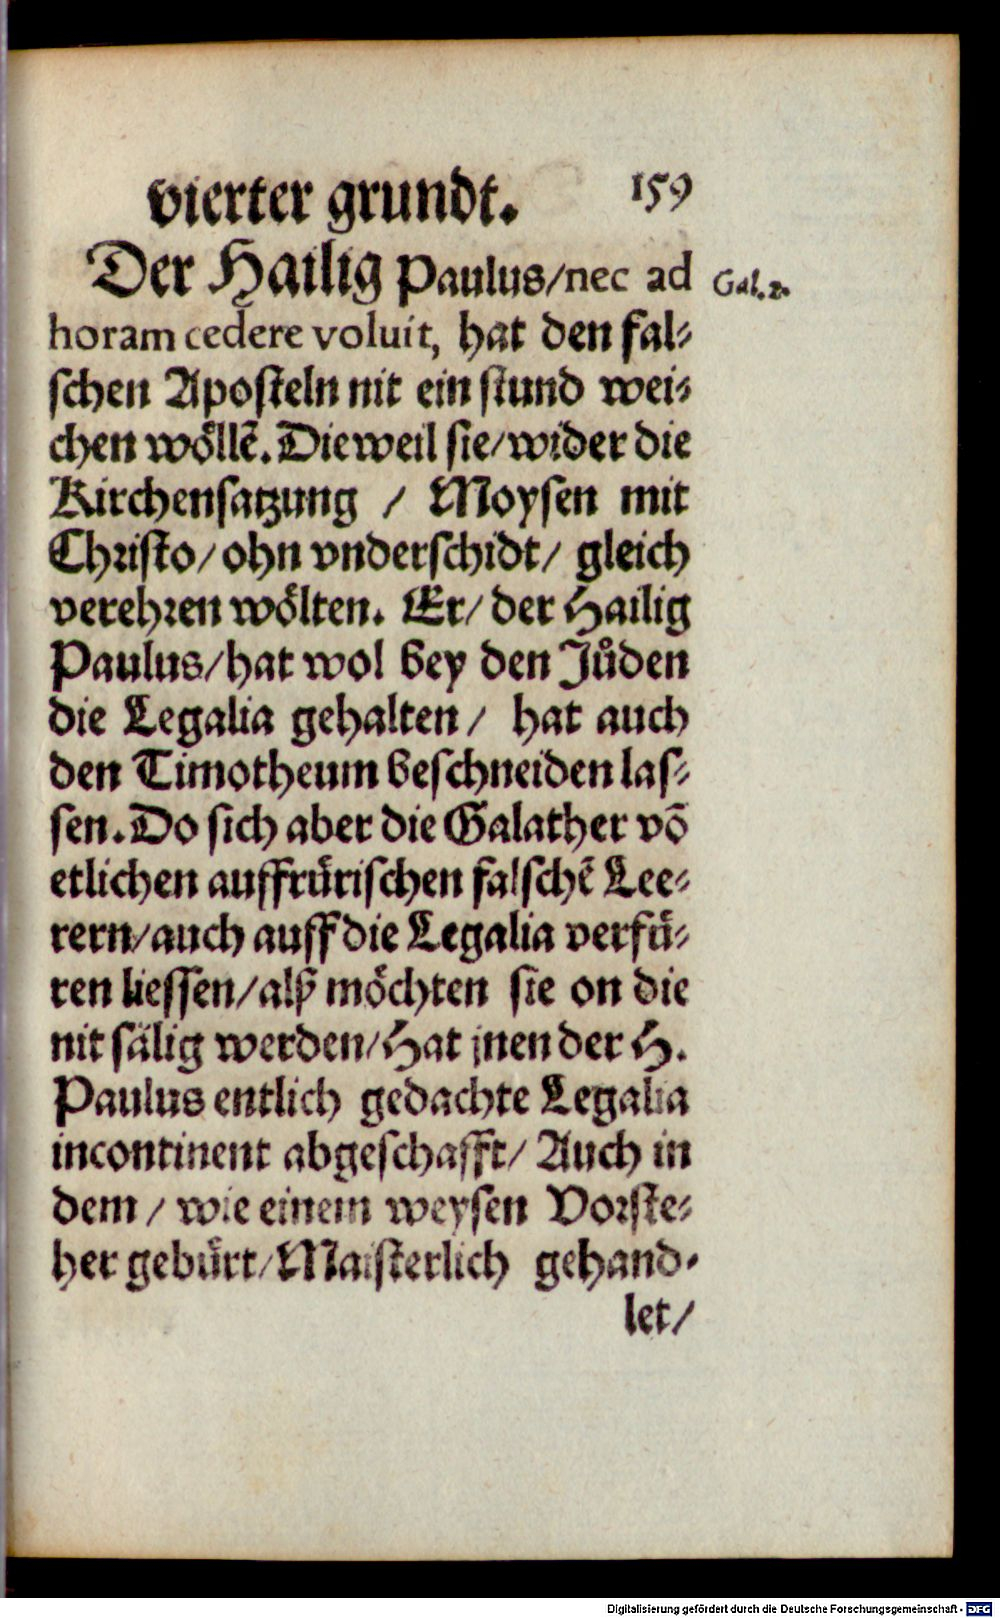 vierter grundt. 159
Der Hailig Paulus/nec ad Gal.2.
horam cedere voluit, hat den fal⸗
schen Aposteln nit ein stund wei⸗
chen wöllē. Dieweil sie/wider die
Kirchensatzung / Moysen mit
Christo/ohn vnderschidt/ gleich
verehren wölten. Er/der Hailig
Paulus/hat wol bey den Jůden
die Legalia gehalten/ hat auch
den Timotheum beschneiden las⸗
sen. Do sich aber die Galather vō
etlichen auffrürischen falschē Lee⸗
rern/auch auff die Legalia verfü⸗
ren liessen/alß möchten sie on die
nit sälig werden/Hat jnen der H.
Paulus entlich gedachte Legalia
incontinent abgeschafft/ Auch in
dem / wie einem weysen Vorste⸗
her gebürt/Maisterlich gehand⸗
let/
Digitalisierung gefördert durch die Deutsche Forschungsgemeinschaft - DFG